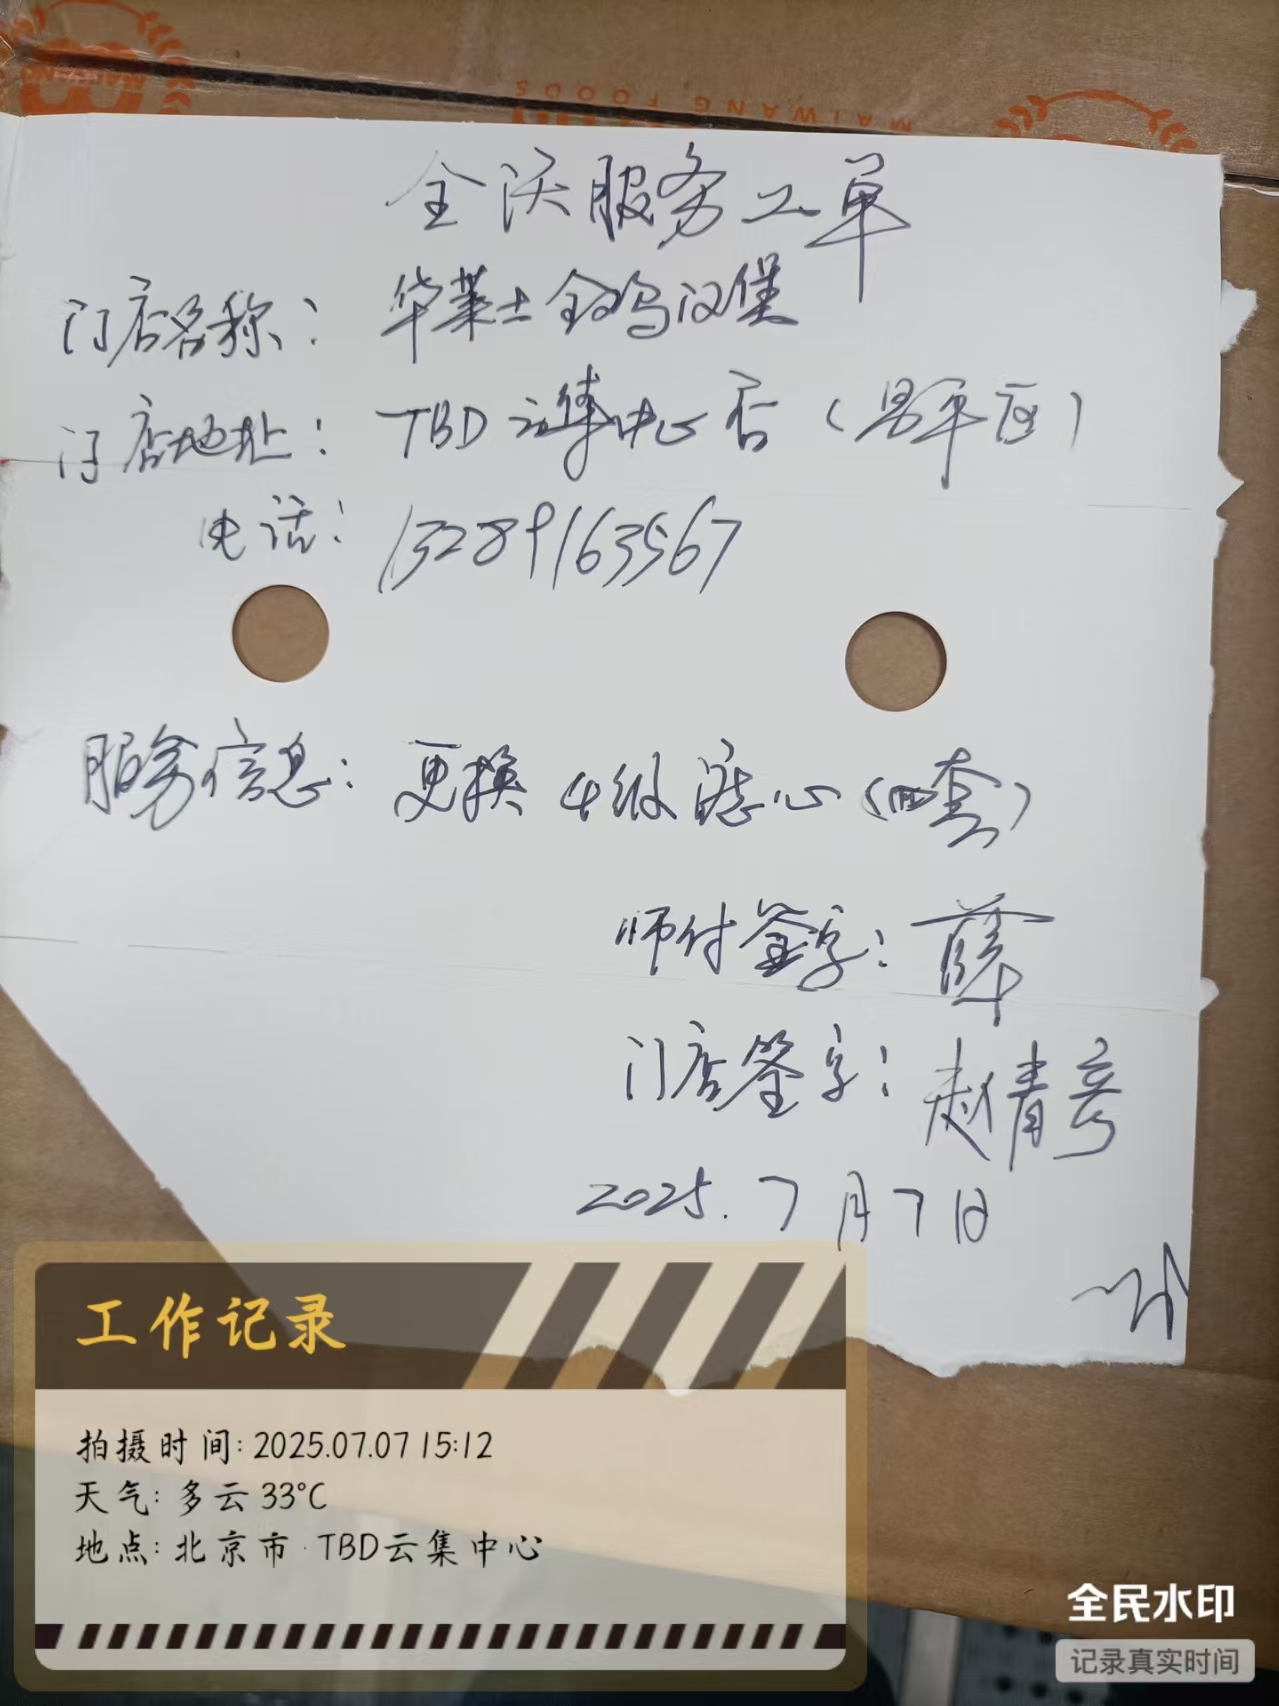 MAIWANG FOODS
全沃服务工单
门店名称：华莱士全鸡汉堡
门店地址：TBD云集中心店（昌平区）
电话：13289163567
服务信息：更换4级滤心（四套）
师付签字：薛
门店签字：赵青
2025.7月7日
工作记录
拍摄时间: 2025.07.07 15:12
天气: 多云 33℃
地点: 北京市·TBD云集中心
全民水印
记录真实时间